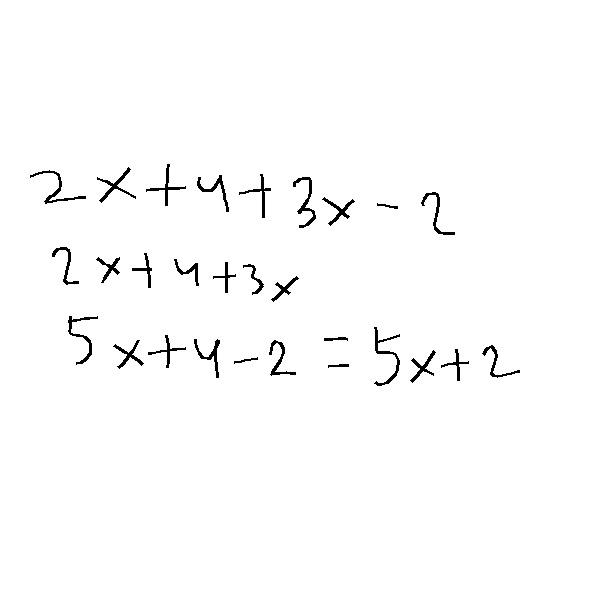 2x+4+3x-2
2x+4+3x
5x+4-2=5x+2